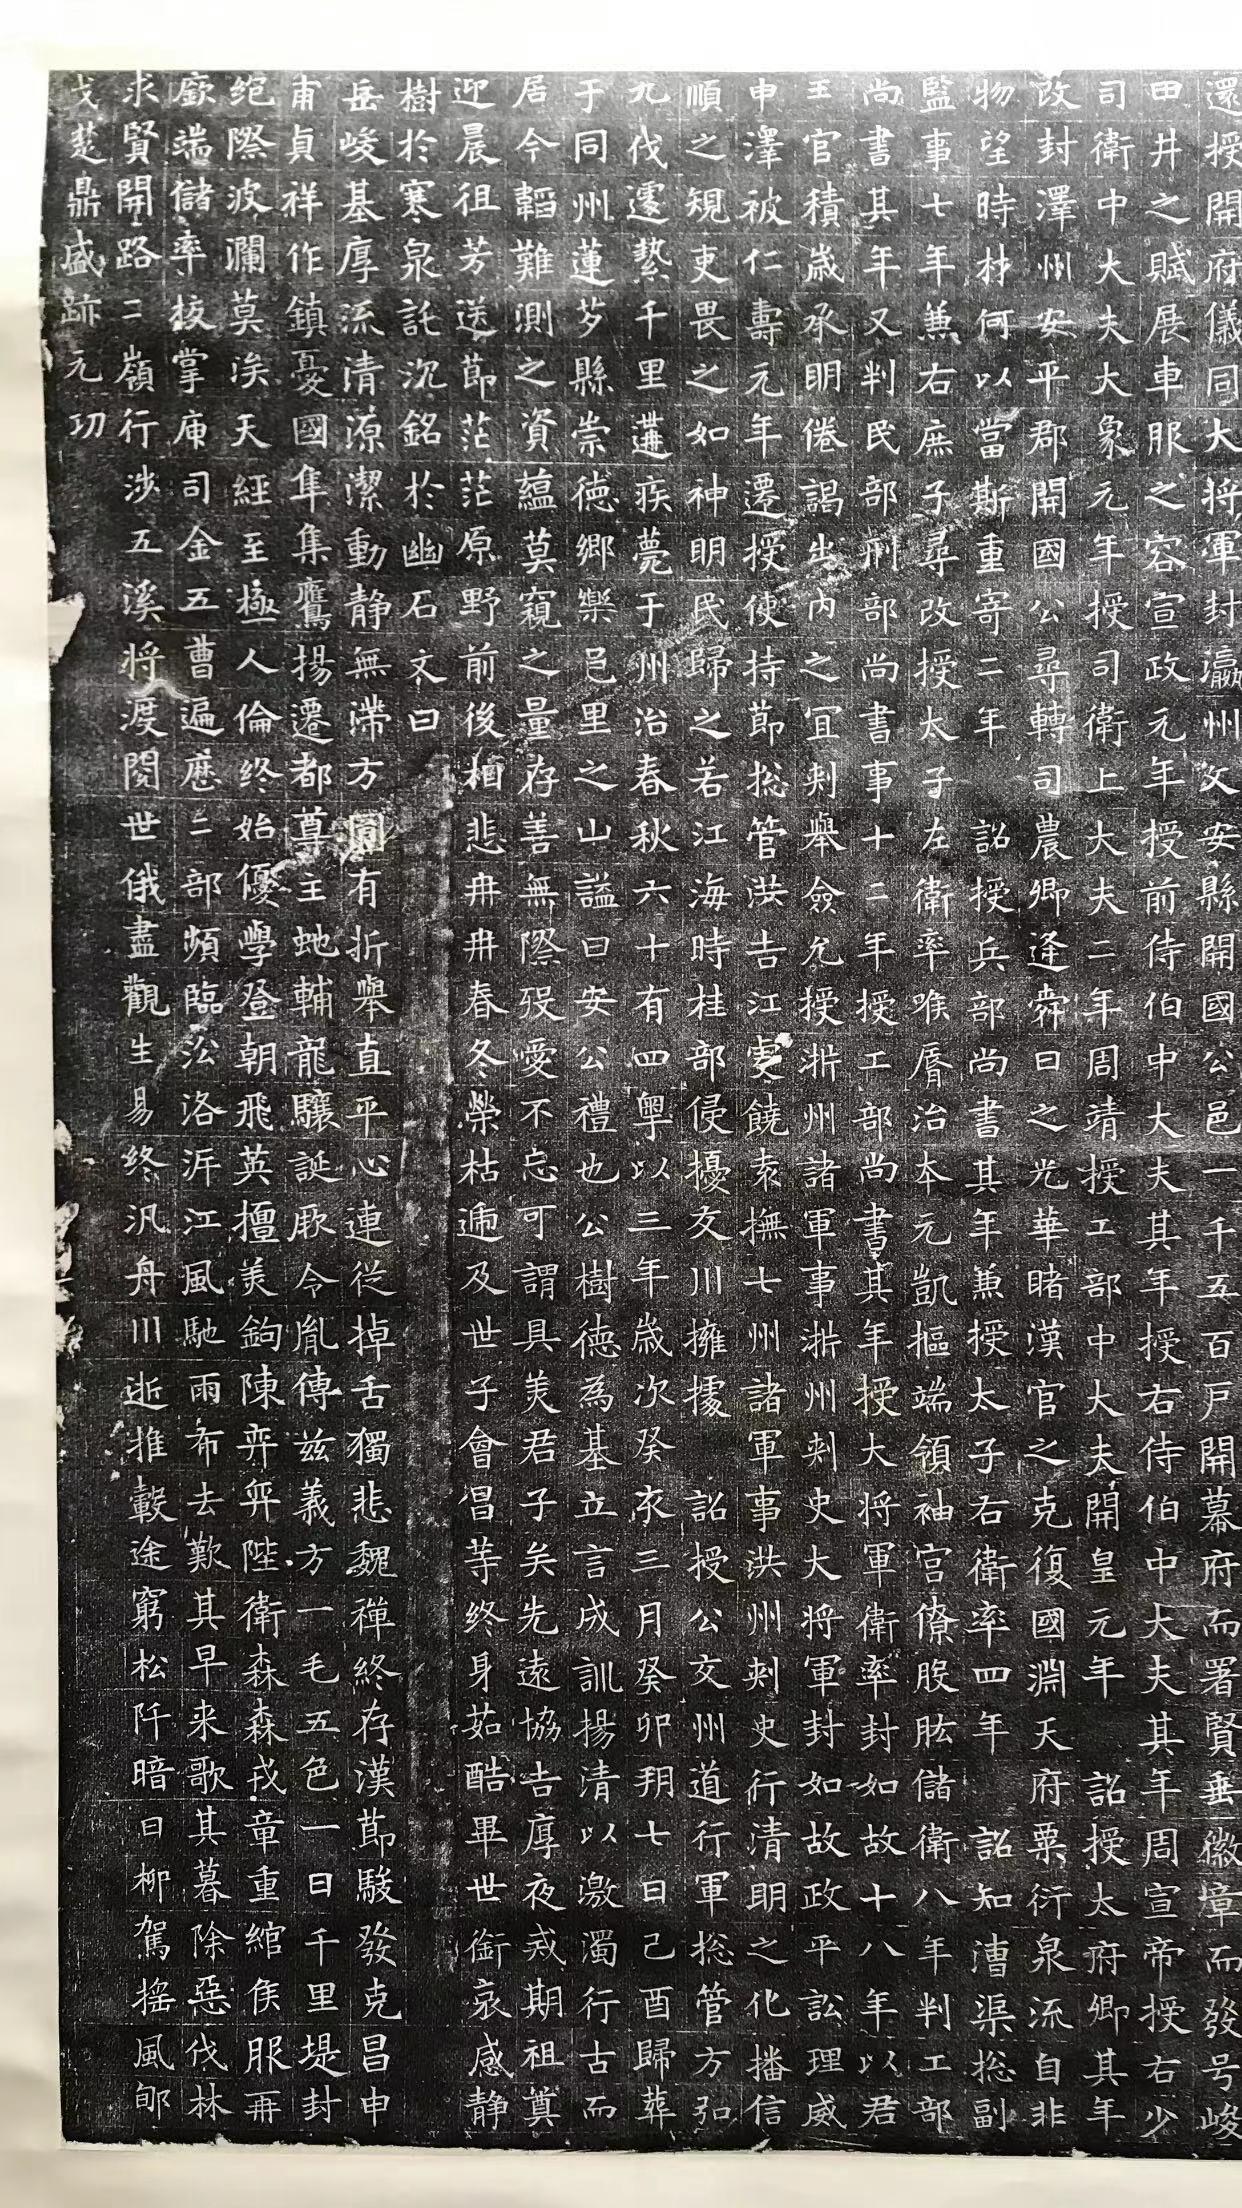 還授開府儀同大将軍封瀛州文安縣開國公邑一千五百戸開幕府而署賢垂徽章而發号峻
田井之賦展車服之容宣政元年授前侍伯中大夫其年授右侍伯中大夫其年周宣帝授右少
司衛中大夫大象元年授司衛上大夫二年周靖授工部中大夫開皇元年 詔授太府卿其年
改封澤州安平郡開國公尋轉司農卿逢舜日之光華睹漢官之克復國淵天府粟衍泉流自非
物望時材何以當斯重寄二年 詔授兵部尚書其年兼授太子右衛率四年 詔知漕渠捴副
監事七年兼右庶子尋改授太子左衛率唯膺治本元凱摳端領袖宫僚股肱儲衛八年判工部
尚書其年又判民部刑部尚書事十二年授工部尚書其年授大将軍衛率封如故十八年以君
王官積歳承明倦謁出内之宜刾舉僉允授淅州諸軍事淅州刾史大将軍封如故政平訟理威
申澤被仁壽元年遷授使持節捴管洪吉江虔饒袁撫七州諸軍事洪州刾史行清明之化播信
順之規吏畏之如神明民歸之若江海時桂部侵擾交川擁據 詔授公交州道行軍捴管方弘
九伐遽縶千里遘疾薨于州治春秋六十有四粤以三年歳次癸亥三月癸卯朔七日己酉歸葬
于同州蓮芍縣崇徳鄉樂邑里之山謚曰安公禮也公樹徳為基立言成訓揚清以激濁行古而
居今韜難測之資蘊莫窺之量存善無際殁愛不忘可謂具美君子矣先遠協吉厚夜戒期祖奠
迎晨徂芳送節茫茫原野前後相悲冉冉春冬榮枯遞及世子會昌等終身茹酷畢世銜哀感静
樹於寒泉託沉銘於幽石文曰
岳峻基厚流清源潔動静無滯方圓有折舉直平心連從掉舌獨悲魏禪終存漢節駿發克昌申
甫貞祥作鎮憂國隼集鷹揚遷都尊主虵輔龍驤誕厥令胤傳兹義方一毛五色一日千里堤封
絶際波瀾莫涘天經至極人倫終始優學登朝飛英擅美鉤陳弈弈陛衛森森戎章重綰侯服再
廞端儲率棱掌庫司金五曹遍歷二部頻臨沿洛泝江風馳雨布去歎其早来歌其暮除惡伐林
求賢開路二嶺行涉五溪将渡閲世俄盡觀生易終汎舟川逝推轂途窮松阡暗日柳駕摇風郇
戈楚鼎盛跡元功